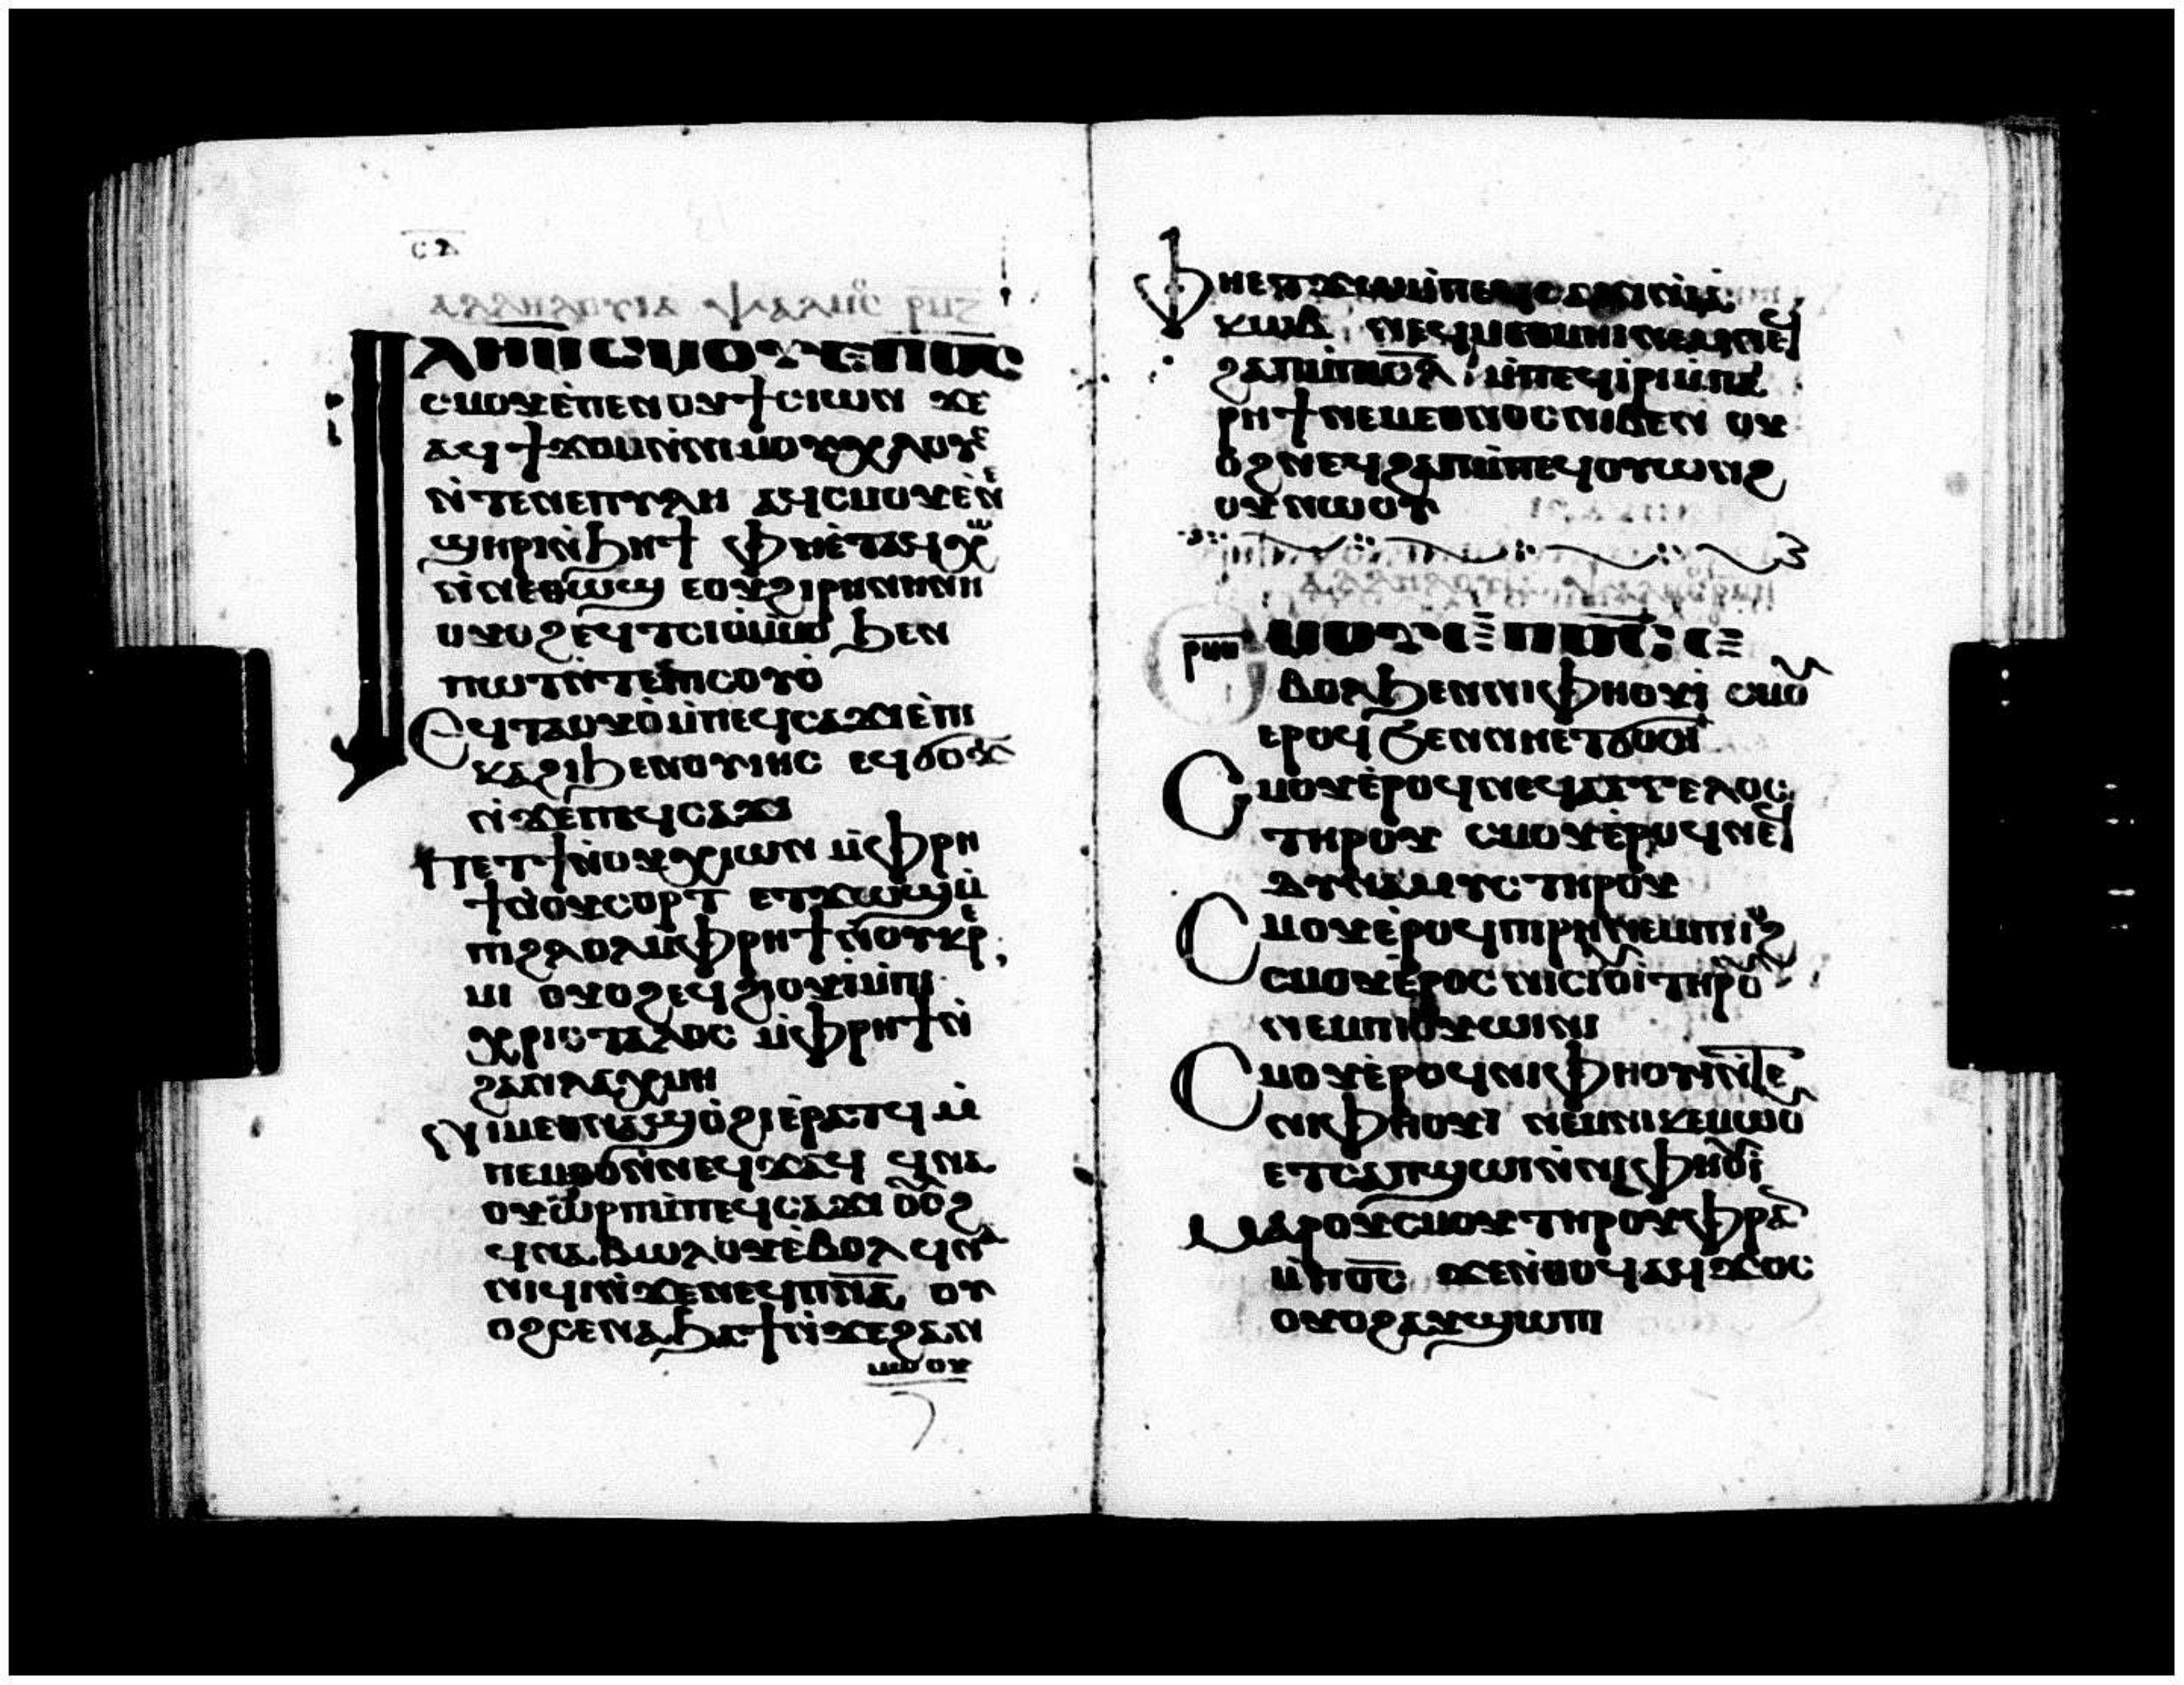 ⲥⲁ
ⲁⲗⲗⲏⲗⲟⲩⲓⲁ ⲯⲁⲗⲙⲟⲥ ⲣⲙⲍ
ⲓⲗⲏⲙ ⲥⲙⲟⲩ ⲉⲡⲟ̅ⲥ̅
ⲥⲙⲟⲩ ⲉ̀ⲡⲉⲛⲟⲩϯ ⲥⲓⲱⲛ ϫⲉ
ⲁϥϯϫⲟⲙ ⲛ̀ⲛⲓⲙⲟⲩⲭⲗⲟⲩⲥ
ⲛ̀ⲧⲉⲛⲉⲡⲩⲗⲏ ⲁϥⲥⲙⲟⲩ ⲉ̀ⲛⲉ
ϣⲏⲣⲓ ⲛ̀ϧⲏϯ ⲫⲏⲉ̀ⲧⲁϥⲭⲱ
ⲛ̀ⲛⲉⲑⲱϣ ⲉⲟⲩϩⲓⲣⲏⲛⲏ ⲛⲏ
ⲟⲩⲟϩ ⲉϥⲧⲥⲓⲟ ⲙ̀ⲙⲟ ϧⲉⲛ
ⲡⲱⲧ ⲛ̀ⲧⲉⲡⲓⲥⲟⲩⲟ̀
ⲉϥⲧⲁⲟⲩⲟ̀ ⲙ̀ⲡⲉϥⲥⲁϫⲓ ⲉ̀ⲡⲓ
ⲕⲁϩⲓ ϧⲉⲛⲟⲩⲓⲏⲥ ⲉϥϭⲟϫⲓ
ⲛ̀ϫⲉⲡⲉϥⲥⲁϫⲓ
ⲡⲉⲧϯ ⲛ̀ⲟⲩⲭⲓⲱⲛ ⲙ̀ⲫⲣⲏ
ϯ ⲛ̀ⲟⲩⲥⲟⲣⲧ ⲉⲧϫⲱϣ ⲙ̀
ⲡⲓϩⲗⲟⲗ ⲙ̀ⲫⲣⲏϯ ⲛ̀ⲟⲩⲕⲉⲣ
ⲙⲓ ⲟⲩⲟϩ ⲉϥϩⲓⲟⲩⲓ ⲙ̀ⲡⲓ
ⲭⲣⲓⲥⲧⲁⲗⲟⲥ ⲙ̀ⲫⲣⲏϯ ⲛ̀
ϩⲁⲛⲗⲁⲭⲙⲏ
ⲛⲓⲙ ⲉⲑⲛⲁϣⲟ̀ϩⲓ ⲉ̀ⲣⲁⲧϥ ⲙ̀
ⲡⲉⲙⲑⲟ ⲛ̀ⲛⲉϥϫⲁϥ ϥⲛⲁ
ⲟⲩⲱⲣⲡ ⲙ̀ⲡⲉϥⲥⲁϫⲓ ⲟⲩⲟϩ
ϥⲛⲁⲃⲱⲗⲟⲩ ⲉ̀ⲃⲟⲗ ϥⲛⲁ
ⲛⲓϥⲓ ⲛ̀ϫⲉⲛⲉϥⲡ̅ⲛ̅ⲁ̅ ⲟⲩ
ⲟϩ ⲥⲉⲛⲁϧⲁϯ ⲛ̀ϫⲉϩⲁⲛ
ⲙⲱⲟⲩ
ⲫⲏⲉⲧϫⲱ ⲙ̀ⲡⲉϥⲥⲁϫⲓ ⲛ̀ⲓⲁ
ⲕⲱⲃ ⲛⲉϥⲙⲉⲑⲙⲏⲓ ⲛⲉⲙ ⲛⲉϥ
ϩⲁⲡ ⲙ̀ⲡⲓⲥ̅ⲗ̅ ⲙ̀ⲡⲉϥⲓⲣⲓ ⲙ̀ⲡⲁⲓ
ⲣⲏϯ ⲛⲉⲙ ⲉⲑⲛⲟⲥ ⲛⲓⲃⲉⲛ ⲟⲩ
ⲟϩ ⲛⲉϥϩⲁⲡ ⲙ̀ⲡⲉϥⲟⲩⲱⲛϩ
ⲟⲩ ⲛⲱⲟⲩ
ⲁⲗⲗⲏⲗⲟⲩⲓⲁ ⲯⲁⲗⲙⲟⲥ ⲣⲙⲏ
ⲣⲙⲏ ⲥⲙⲟⲩ ⲉⲡⲟ̅ⲥ̅ ⲉ
ⲃⲟⲗ ϧⲉⲛ ⲛⲓⲫⲏⲟⲩⲓ̀ ⲥⲙⲟⲩ
ⲉⲣⲟϥ ϧⲉⲛ ⲛⲏⲉⲧϭⲟⲥⲓ
ⲥⲙⲟⲩ ⲉ̀ⲣⲟϥ ⲛⲉϥⲁⲅⲅⲉⲗⲟⲥ
ⲧⲏⲣⲟⲩ ⲥⲙⲟⲩ ⲉ̀ⲣⲟϥ ⲛⲉϥ
ⲇⲩⲛⲁⲙⲓⲥ ⲧⲏⲣⲟⲩ
ⲥⲙⲟⲩ ⲉ̀ⲣⲟϥ ⲡⲓⲣⲏ ⲛⲉⲙ ⲡⲓⲓⲟϩ
ⲥⲙⲟⲩ ⲉ̀ⲣⲟϥ ⲛⲓⲥⲓⲟⲩ ⲧⲏⲣⲟⲩ
ⲛⲉⲙ ⲡⲓⲟⲩⲱⲓⲛⲓ
ⲥⲙⲟⲩ ⲉ̀ⲣⲟϥ ⲛⲓⲫⲏⲟⲩⲓ ⲛ̀ⲧⲉ
ⲛⲓⲫⲏⲟⲩⲓ ⲛⲉⲙ ⲛⲓⲕⲉⲙⲱⲟⲩ
ⲉⲧⲥⲁⲡϣⲱⲓ ⲛ̀ⲛⲓⲫⲏⲟⲩⲓ
ⲙⲁⲣⲟⲩⲥⲙⲟⲩ ⲧⲏⲣⲟⲩ ⲫⲣⲁⲛ
ⲙ̀ⲡⲟ̅ⲥ̅ ϫⲉ ⲛ̀ⲑⲟϥ ⲁϥϫⲟⲥ
ⲟⲩⲟϩ ⲁⲩϣⲱⲡⲓ